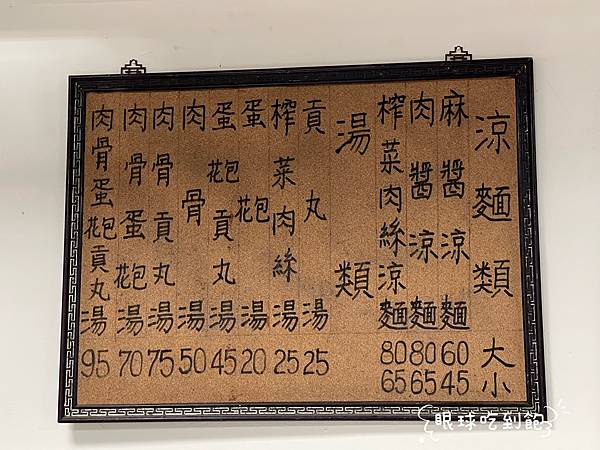 涼麵類 大 小
麻醬涼麵 60 45
肉醬涼麵 80 65
榨菜肉絲涼麵 80 65
湯類
貢丸湯 25
榨菜肉絲湯 25
蛋花包湯 20
蛋花包貢丸湯 45
肉骨湯 50
肉骨貢丸湯 75
肉骨蛋花包湯 70
肉骨蛋花包貢丸湯 95
眼球吃到飽